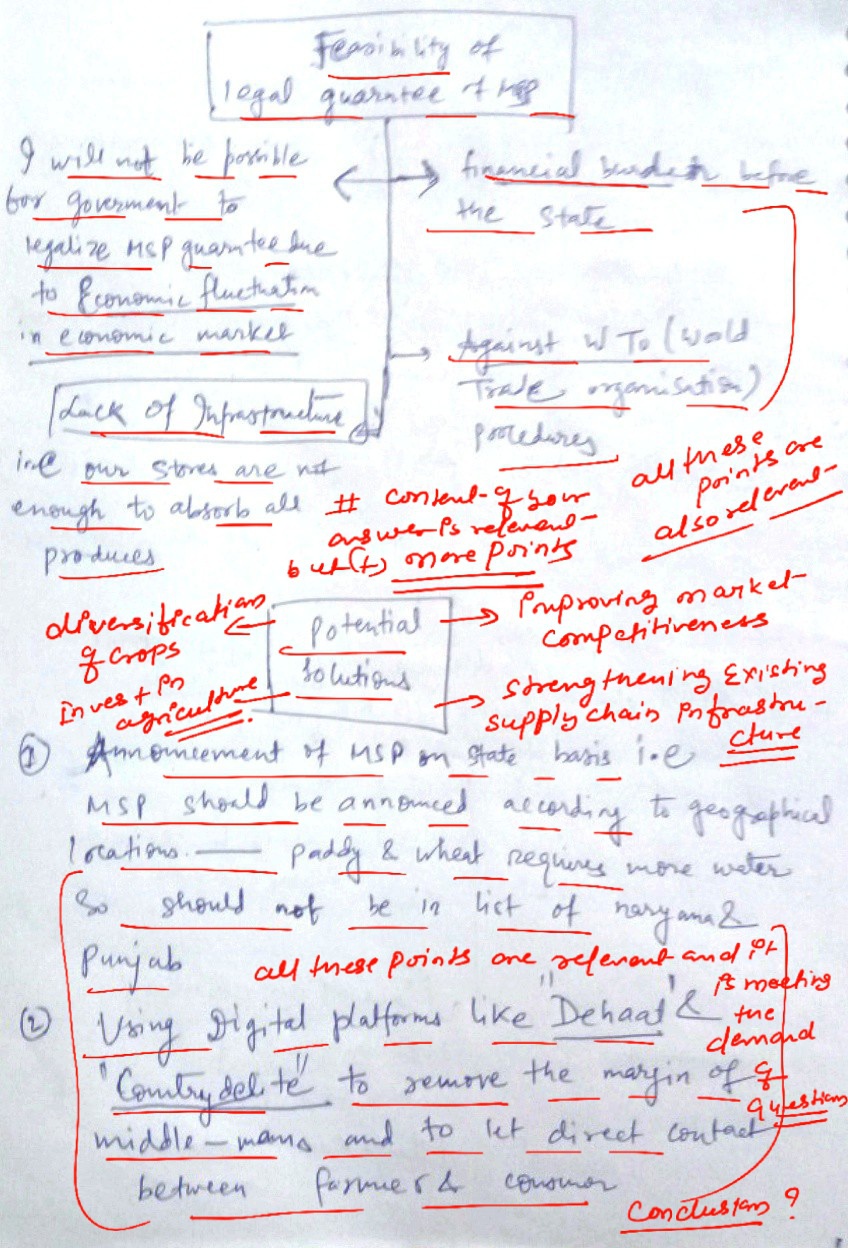 Feasibility of
legal guarntee of MSP
I will not be possible
for goverment to
legalize MSP guarntee due
to Economic fluctuation
in economic market
financial burden before
the state
Against WTO (World
Trade organisation)
procedures
Lack Of Infrastructure
i.e our stores are not
enough to absorb all
produces
all these
points are
also relevant
# content of your
answer is relevant
but (+) more points
diversification
of crops
Invest in
agriculture
Potential
Solutions
Improving market
competitiveness
strengthening Existing
supply chain Infrastru-
cture
① Announcement of MSP on state basis i.e
MSP should be announced according to geographical
locations. — paddy & wheat requires more water
So should not be in list of haryana &
Punjab
all these points are relevant and it
is meeting
the
demand
of
question
② Using Digital platforms like "Dehaat" &
"Countrydelite" to remove the margin of
middle-mans and to let direct contact
between farmer & consumer
Conclusion?